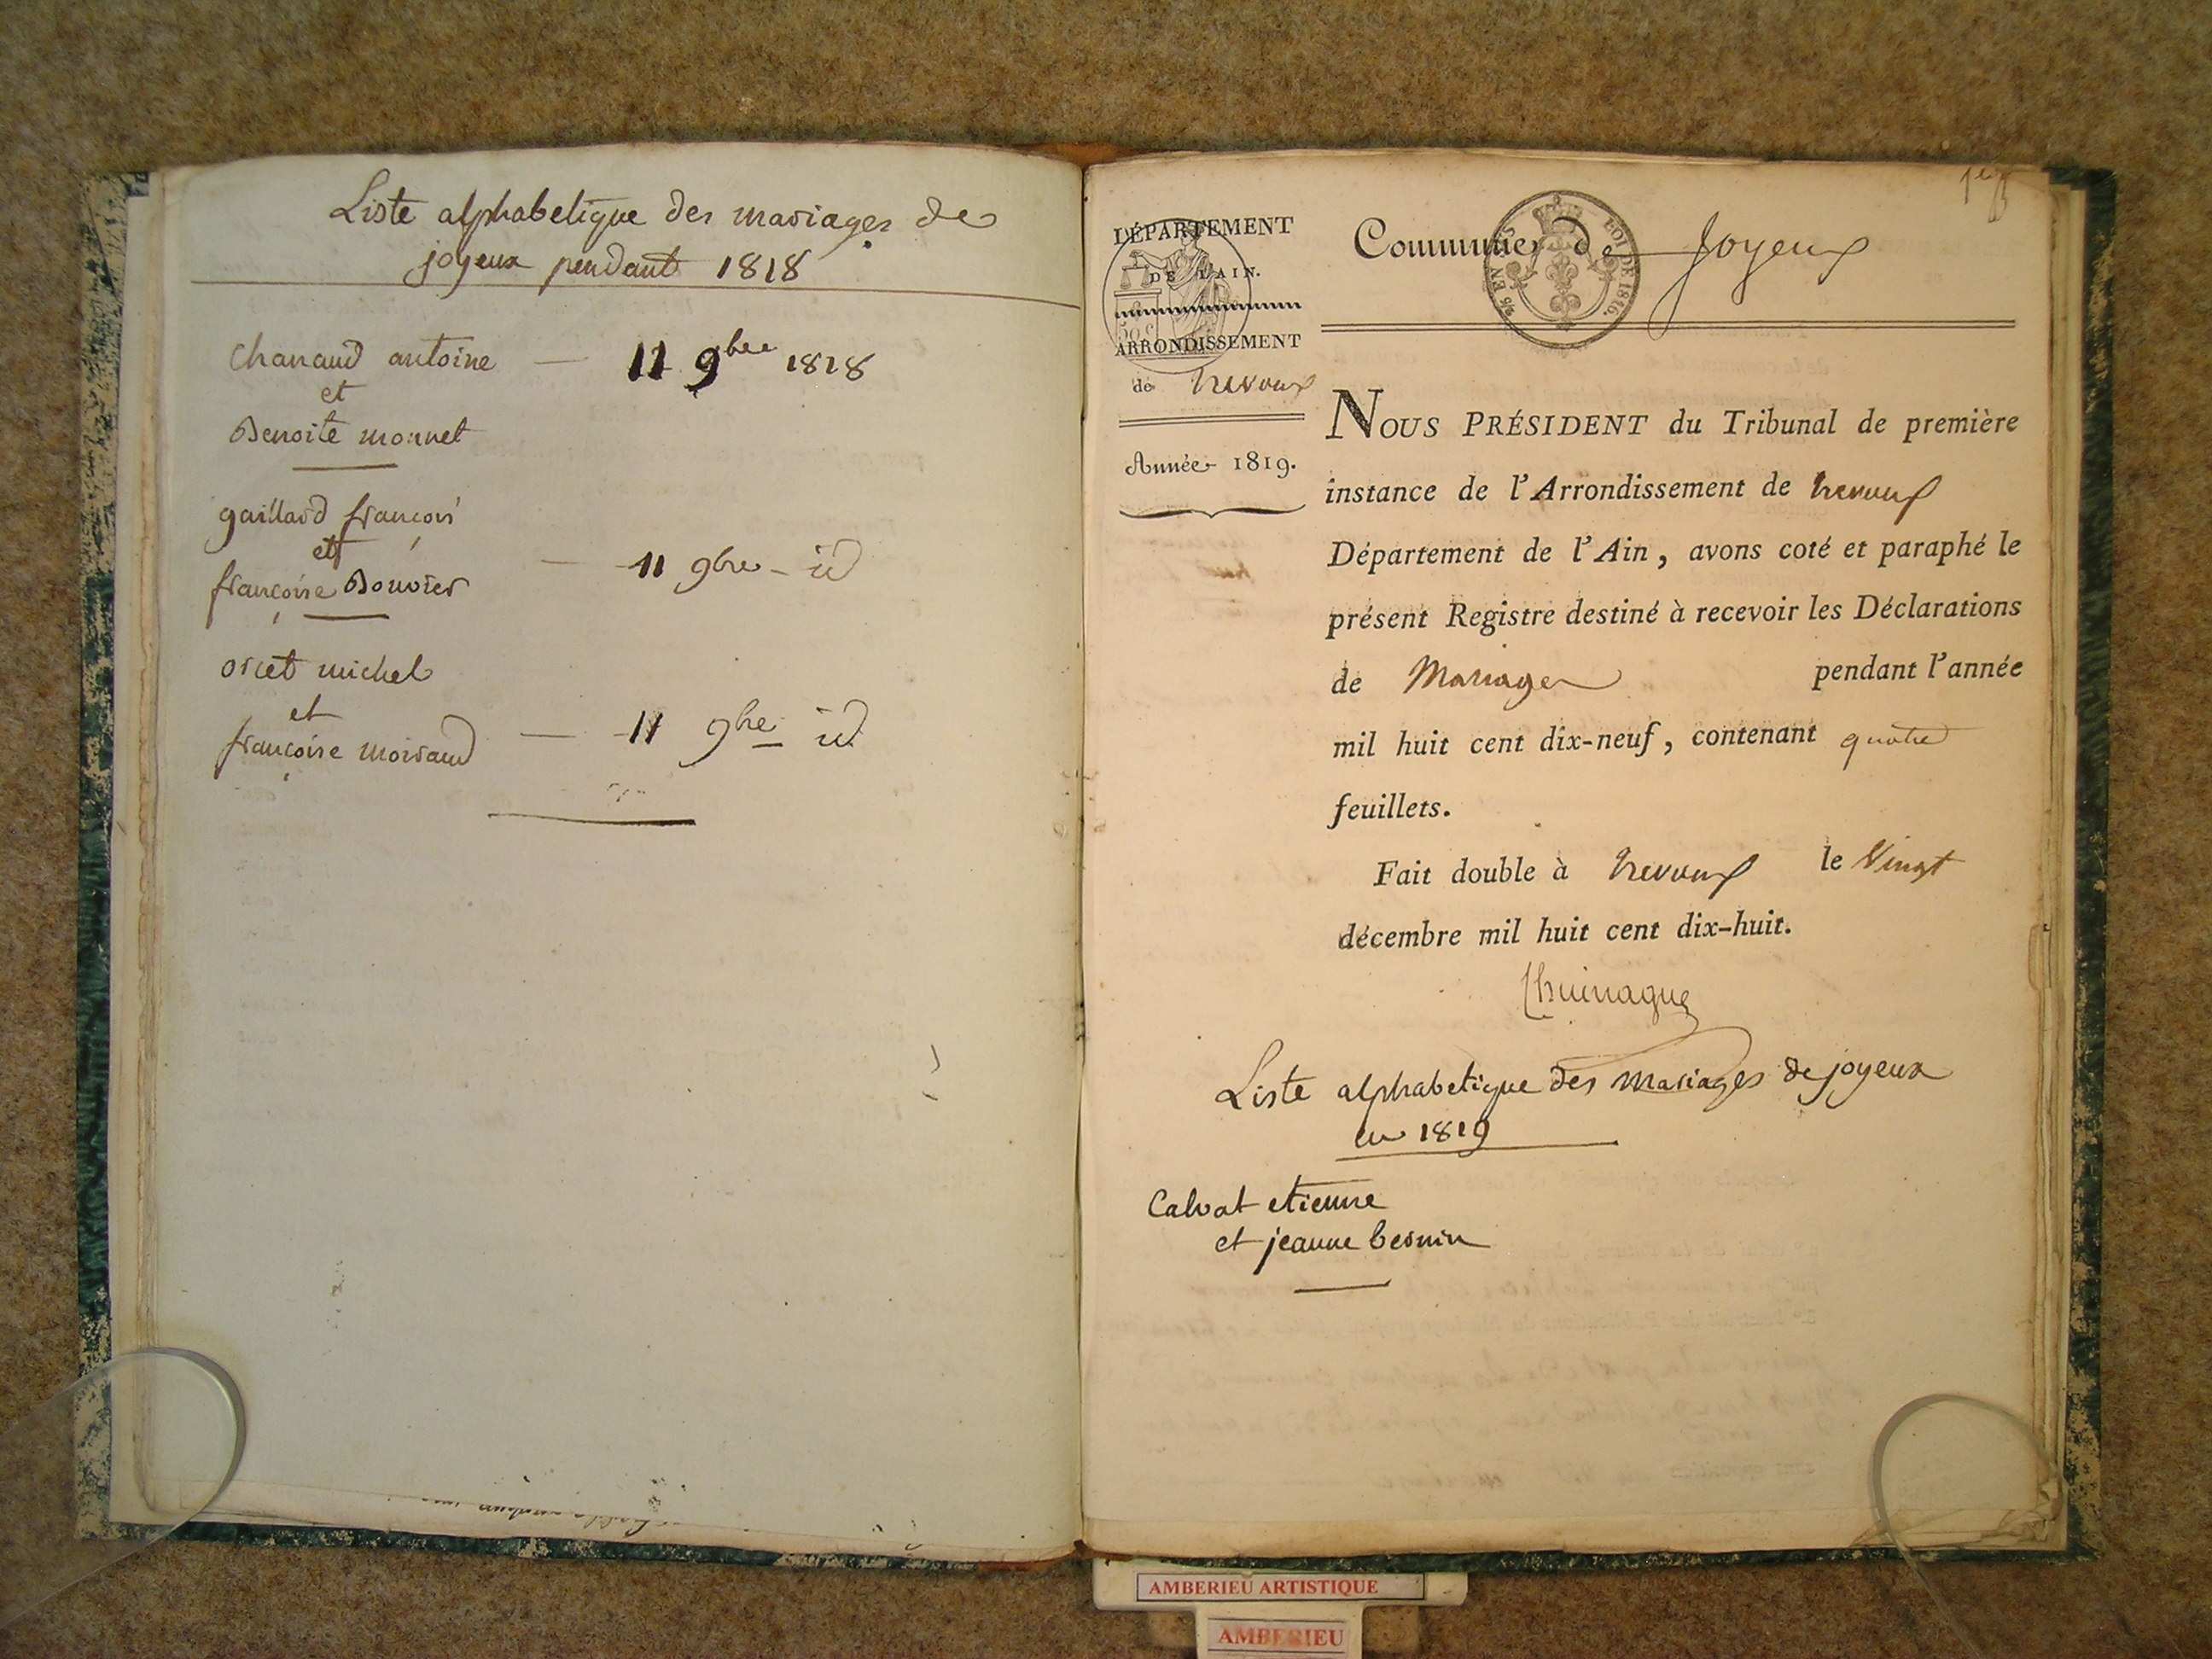 Liste alphabetique des mariages de
joyeux pendant 1818
chanaud antoine — 11 9bre 1818
et
Benoite monnet
gaillard françois
et — 11 9bre - id
françoise Bouvier
orcet michel
et — 11 9bre id
françoise moiraud
DÉPARTEMENT
DE L'AIN.
50 c
ARRONDISSEMENT
de Trevoux
Année 1819.
Commune de Joyeux
LOI DE 1816.
NOUS PRÉSIDENT du Tribunal de première
instance de l'Arrondissement de Trevoux
Département de l'Ain, avons coté et paraphé le
présent Registre destiné à recevoir les Déclarations
de Mariages pendant l'année
mil huit cent dix-neuf, contenant quatre
feuillets.
Fait double à Trevoux le Vingt
décembre mil huit cent dix-huit.
Liste alphabetique des mariages de joyeux
en 1819
Calvat etienne
et jeanne bernin
AMBERIEU ARTISTIQUE
AMBERIEU